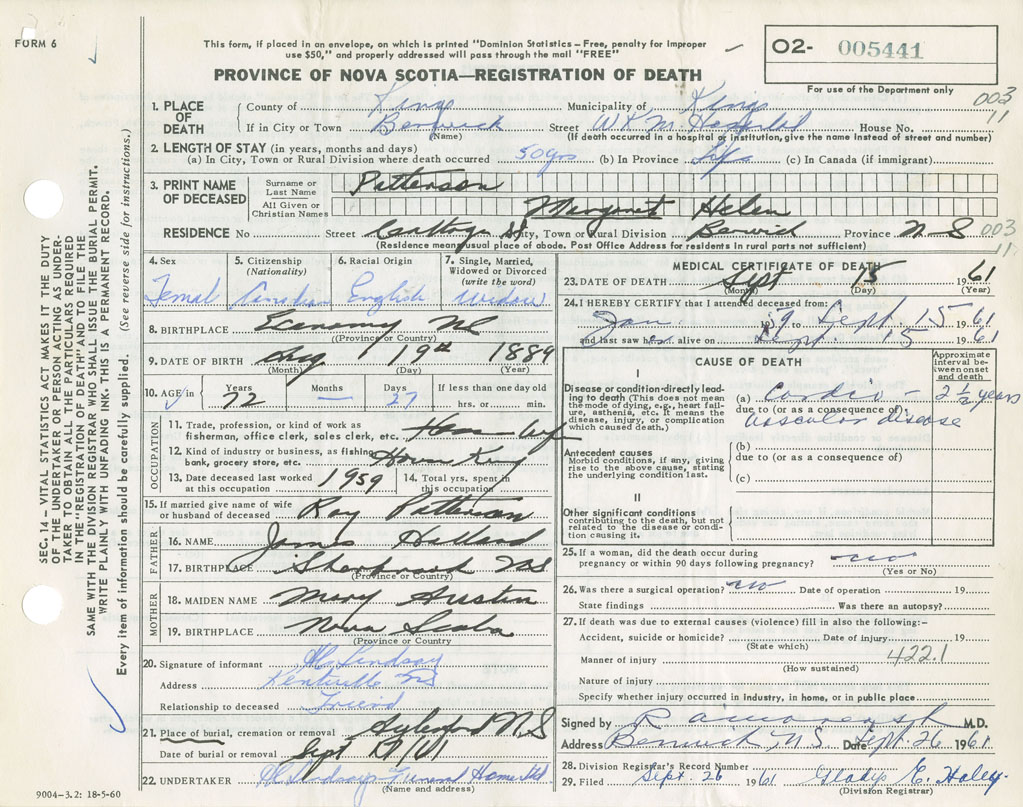 FORM 6
This form, if placed in an envelope, on which is printed "Dominion Statistics – Free, penalty for improper
use $50," and properly addressed will pass through the mail "FREE"
O2- 005441
PROVINCE OF NOVA SCOTIA—REGISTRATION OF DEATH
For use of the Department only
003
11
1. PLACE OF DEATH County of Kings Municipality of Kings
If in City or Town Berwick Street W K M Hospital House No.
(Name) (If death occurred in a hospital or institution, give the name instead of street and number)
2. LENGTH OF STAY (in years, months and days)
(a) In City, Town or Rural Division where death occurred 50 yrs (b) In Province Life (c) In Canada (if immigrant)
3. PRINT NAME OF DECEASED Surname or Last Name Patterson
All Given or Christian Names Margaret Helen
RESIDENCE No. Street Cottage St City, Town or Rural Division Berwick Province N S
003
11
(Residence mean usual place of abode. Post Office Address for residents in rural parts not sufficient)
4. Sex 5. Citizenship (Nationality) 6. Racial Origin 7. Single, Married, Widowed or Divorced (write the word)
Femal Canadian English Widow
8. BIRTHPLACE Economy NS
(Province or Country)
9. DATE OF BIRTH Aug 19th 1889
(Month) (Day) (Year)
10. AGE Years 72 Months — Days 27 If less than one day old
hrs. or min.
OCCUPATION
11. Trade, profession, or kind of work as
fisherman, office clerk, sales clerk, etc. House Wife
12. Kind of industry or business, as fishing,
bank, grocery store, etc.
13. Date deceased last worked at this occupation 1959 14. Total yrs. spent in this occupation
15. If married give name of wife
or husband of deceased Ray Patterson
FATHER
16. NAME James
17. BIRTHPLACE Sherbrook NS
(Province or Country)
MOTHER
18. MAIDEN NAME Mary Austin
19. BIRTHPLACE Nova Scotia
(Province or Country)
20. Signature of informant Lindsay
Address Kentville NS
Relationship to deceased Friend
21. Place of burial, cremation or removal Aylesford N S
Date of burial or removal Sept 17/61
22. UNDERTAKER Lindsay Funeral Home Ltd
(Name and address)
9004-3.2: 18-5-60
MEDICAL CERTIFICATE OF DEATH
23. DATE OF DEATH Sept 15 1961
(Month) (Day) (Year)
24. I HEREBY CERTIFY that I attended deceased from:
Jan. 1959 to Sept. 15 1961
and last saw her alive on Sept. 15 1961
CAUSE OF DEATH
Approximate interval between onset and death
I
Disease or condition directly leading to death (This does not mean the mode of dying, e.g., heart failure, asthenia, etc. It means the disease, injury, or complication which caused death.)
(a) Cardio - 2 1/2 years
due to (or as a consequence of)
vascular disease
Antecedent causes
Morbid conditions, if any, giving rise to the above cause, stating the underlying condition last.
(b)
due to (or as a consequence of)
(c)
II
Other significant conditions
contributing to the death, but not related to the disease or condition causing it.
25. If a woman, did the death occur during
pregnancy or within 90 days following pregnancy? no
(Yes or No)
26. Was there a surgical operation? no Date of operation 19
State findings Was there an autopsy?
27. If death was due to external causes (violence) fill in also the following:-
Accident, suicide or homicide? Date of injury 19
(State which)
Manner of injury 422.1
(How sustained)
Nature of injury
Specify whether injury occurred in industry, in home, or in public place
Signed by M.D.
Address Berwick, N.S. Date Sept. 26 1961
28. Division Registrar's Record Number
29. Filed Sept. 26 1961 Gladys E. Haley
(Division Registrar)
SEC. 14 – VITAL STATISTICS ACT MAKES IT THE DUTY
OF THE UNDERTAKER OR PERSON ACTING AS UNDER-
TAKER TO OBTAIN ALL THE PARTICULARS REQUIRED
IN THE "REGISTRATION OF DEATH" AND TO FILE THE
SAME WITH THE DIVISION REGISTRAR WHO SHALL ISSUE THE BURIAL PERMIT.
WRITE PLAINLY WITH UNFADING INK. THIS IS A PERMANENT RECORD.
Every item of information should be carefully supplied. (See reverse side for instructions.)